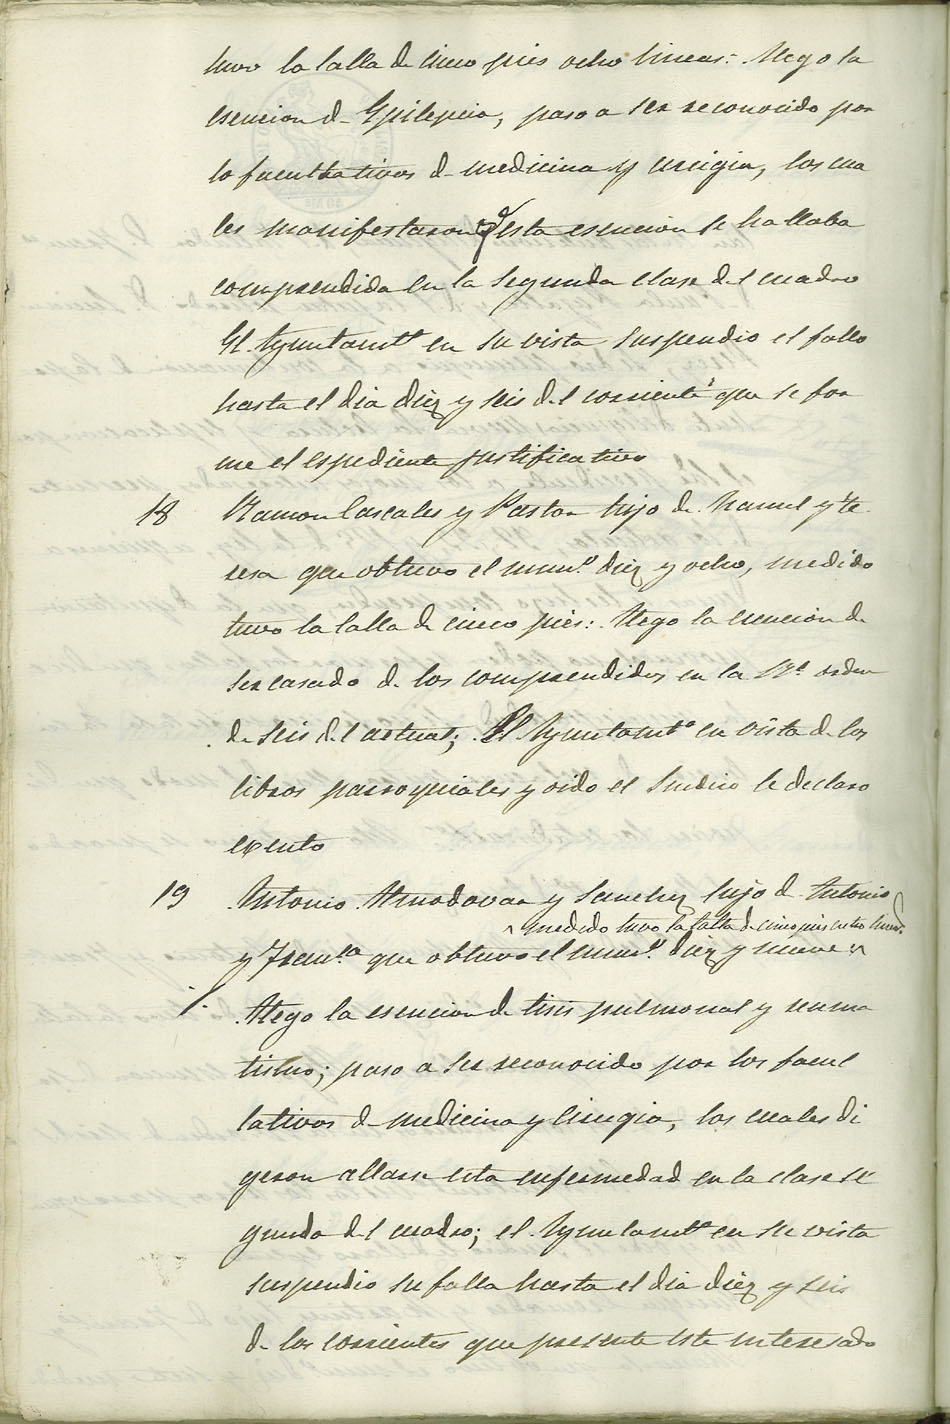 tuvo la talla de cinco pies ocho lineas: Alego la
esencion de Epilepcia, paso a ser reconocido por
lo facultativos de medicina y cirugia, los cua
les manifestaron qe esta esencion se hallaba
comprendida en la segunda clase del cuadro
El Ayuntamto en su vista suspendio el fallo
hasta el dia diez y seis del corriente que se for
me el espediente justificativo
18 Ramon Cascales y Pastor hijo de Manuel y Te
resa que obtuvo el numo diez y ocho, medido
tuvo la talla de cinco pies: Alego la esencion de
ser casado de los comprendidos en la Rl orden
de seis del actual; El Ayuntamto en vista de los
libros parroquiales y oido el Sindico le declaro
exento
19 Antonio Almodovar y Sanchez hijo de Antonio
medido tuvo la talla de cinco pies cuatro lineas
y Franca que obtuvo el numo diez y nueve
Alego la esencion de tisis pulmonal y reuma
tismo; paso a ser reconocido por los facul
tativos de medicina y cirugia, los cuales di
geron allarse esta enfermedad en la clase se
gunda del cuadro; el Ayuntamto en su vista
suspendio su falla hasta el dia diez y seis
de los corrientes que presente este interesado